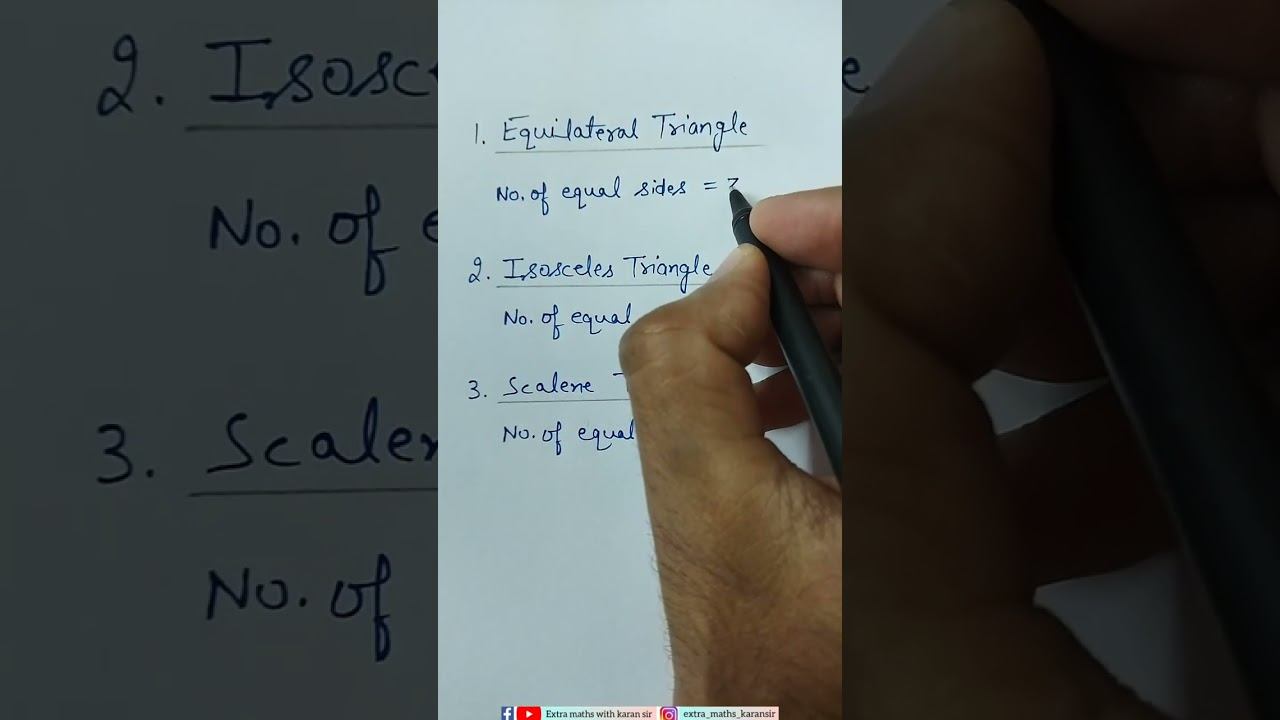 1. Equilateral Triangle
No. of equal sides = 3
2. Isosceles Triangle
No. of equal
3. Scalene
No. of equal
Extra maths with karan sir extra_maths_karansir